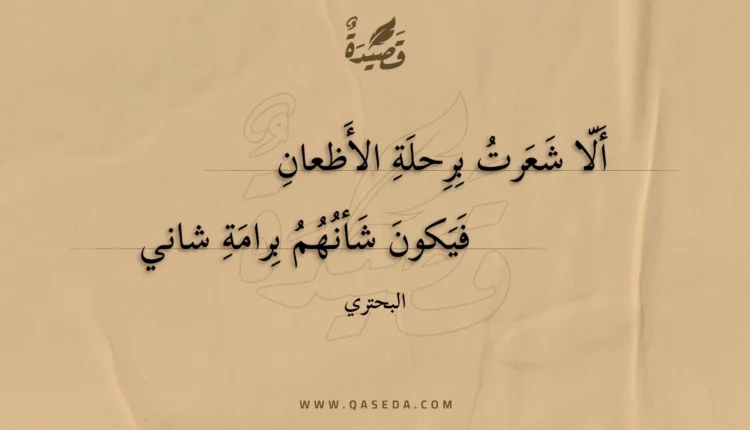 قَصِيْدَةٌ
أَلّا شَعَرتُ بِرِحلَةِ الأَظعانِ
فَيَكونَ شَأنُهُمُ بِرامَةِ شاني
البحتري
WWW.QASEDA.COM